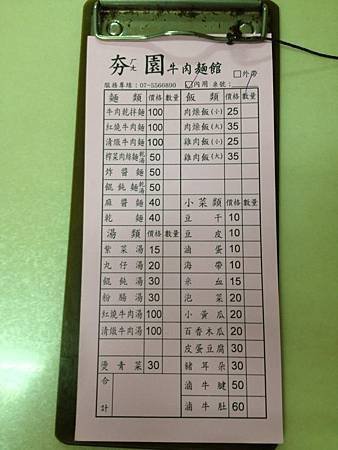 夯ㄏㄤ園牛肉麵館 □外帶
服務專線：07-5566890 □內用 桌號：
麵類 價格 數量 飯類 價格 數量
牛肉乾拌麵 100 肉燥飯(小) 25
紅燒牛肉麵 100 肉燥飯(大) 35
清燉牛肉麵 100 雞肉飯(小) 25
榨菜肉絲麵乾湯 50 雞肉飯(大) 35
炸醬麵 50
餛飩麵乾湯 50
麻醬麵 40 小菜類 價格 數量
乾麵 40 豆干 10
湯類 價格 數量 豆皮 10
紫菜湯 15 滷蛋 10
丸仔湯 20 海帶 10
餛飩湯 30 米血 15
粉腸湯 30 泡菜 20
紅燒牛肉湯 100 小黃瓜 20
清燉牛肉湯 100 百香木瓜 20
皮蛋豆腐 30
燙青菜 30 豬耳朵 30
合計 滷牛腱 50
滷牛肚 60